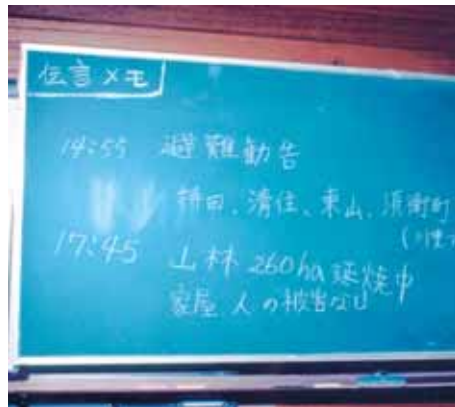 伝言メモ
14:55 避難勧告
清住、東山、
17:45 山林 260ha 延焼中
家屋 人の被害なし